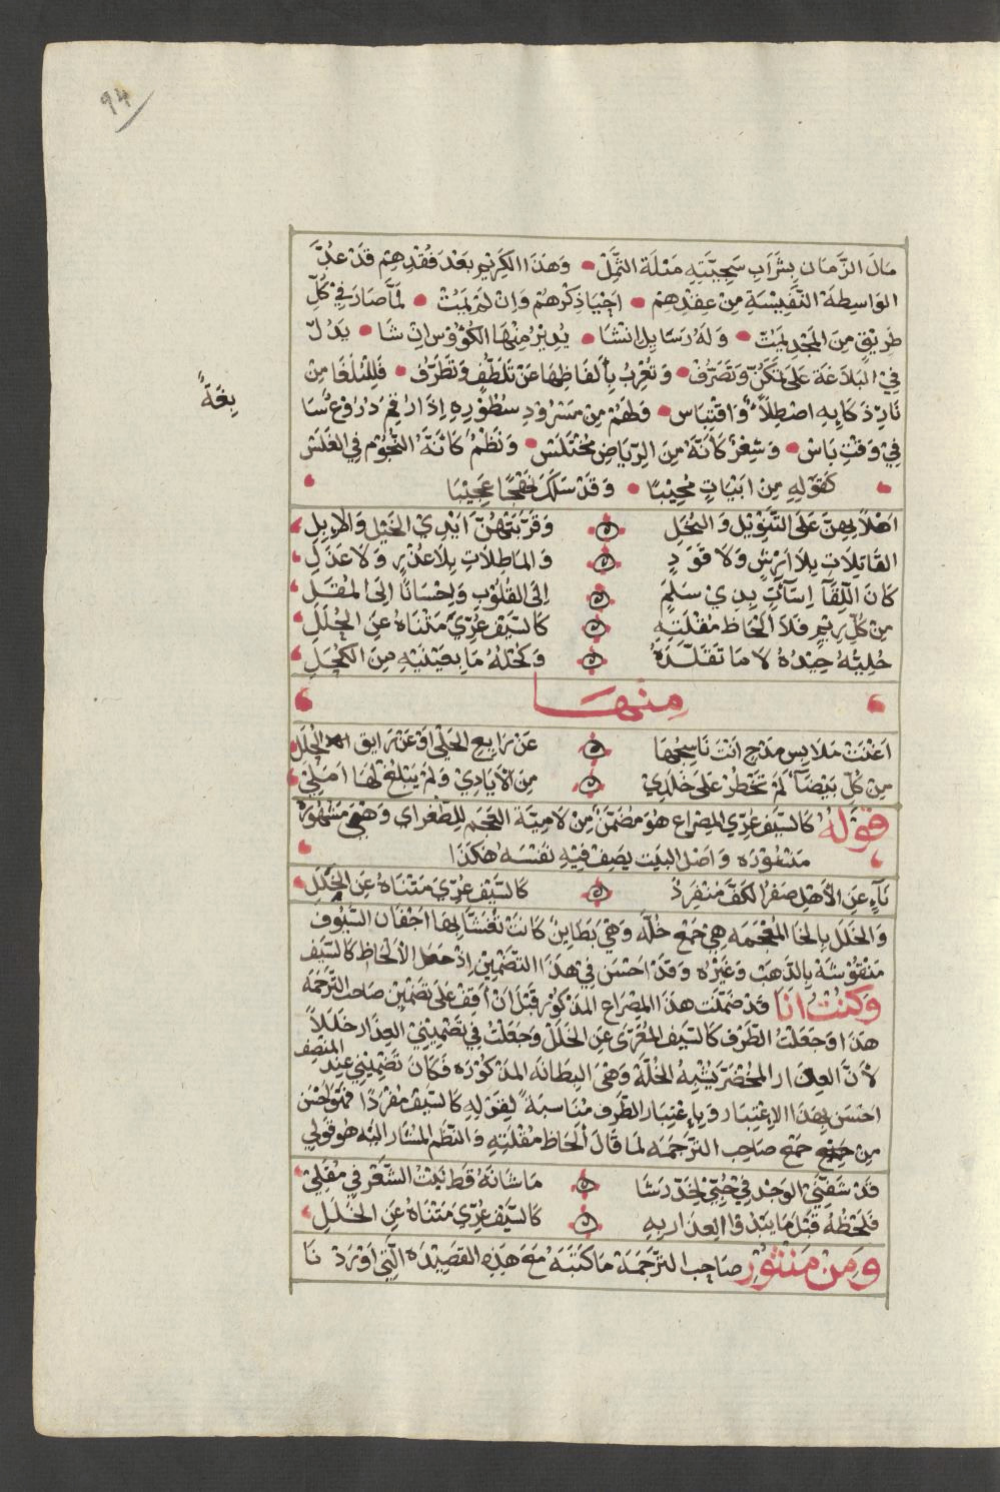 ٩٤
مَالَ الزَّمَان بِشَرَابِ سَجِيَّتِهِ مَيْلَةَ الثَّمِلْ • وَهَذَا الكَرِيم بَعْدَ فَقْدِهِمْ قَدْ عُدَّ
الوَاسِطَةَ النَّفِيسَةِ مِنْ عِقْدِهِمْ • احْيَا ذِكْرَهُمْ وَاِنْ لَمْ يَمُتْ • لَمَّا صَارَ فِي كُلِّ
طَرِيْقٍ مِنَ المَجْدِ يَمُتّ • وَلَهُ رَسَايِل انْشَا • يُدِيْرُ مِنْهَا الكُؤْوْس اِنْ شَا • يَدُلّ
فِي البَلَاغَة عَلَى تَمَكُّنٍ وَتَصَرُّفْ • وَتُعْرِبُ بِأَلفَاظِهَا عَنْ تَلَطُّفٍ وَتَظَرُّفْ • فَلِلْبُلَغَا مِنْ
نَارِ ذَكَايِهِ اصْطِلَاءٌ وَاقْتِبَاس • وَلَهُمْ مِنْ مَسْرُوْدِ سُطُوْرِهِ اِدِّارُ فِي دُرُوْعٍ سَا
بِغَةً
فِيْ وَقْتِ بَاسْ • وَشِعْرٌ كَأَنَّهُ مِنَ الرِّيَاضِ مُخْتَلَسْ • وَنَظْمٌ كَأنَّهُ النُّجُوْم فِي الغَلَسْ
كَقَوْلِهِ مِنْ ابْيَاتٍ مُجِيْبًا • وَقَدْ سَلَكَ نَهْجًا عَجِيْبًا
اهْلًا بِهِنَّ عَلَى التَّنْوِيْل وَالبُخُلِ وَقَرَّبَتْهُنَّ ايْدِيْ الخَيْلِ وَالاِبِلِ
القَاتِلَاتِ بِلَا اَرْشٍ وَلَا قَوَدٍ وَالمَاطِلَاتِ بِلَا عُذْرٍ وَلَا عَذَلِ
كَانَ اللِّقَآ اِسَآئَتٍ بِذِيْ سَلَمٍ اِلَى القُلُوْبِ وَاِحْسَانًا اِلَى المُقَلِ
مِنْ كُلِّ رِيْمٍ فَلَا أَلْحَاظَ مُقْلَتِهِ كَالسَّيْفِ عُرِّيَ مَتْنَاهُ عَنِ الخِلَلِ
حُلِيُّهُ جِيْدُهُ لَا مَا تَقَلَّدَهُ وَكُحْلُهُ مَا بِعَيْنَيْهِ مِنَ الكَحَلِ
مِنْهَا
اَغْنَتْ مَلَابِس مَدْحٍ اَنْتَ نَاسِجُهَا عَنْ رَايِعِ الحَلْيِ اَوْ عَنْ رَايِقِ الحُلَلِ
مِنْ كُلِّ بَيْضَآءَ لَمْ تَخْطُرْ عَلَى خَلَدِيْ مِنَ الأَيَادِيْ وَلَمْ يَبْلُغْ لَهَا اَمَلِيْ
قَوْلُهُ كَالسَّيْفِ عُرِّي المِصْرَاع هُوَ مُضَمَّنٌ مِنْ لَامِيَّة العَجَم لِلطُّغْرَاي وَهْيَ مَشْهُوْرَةٌ
وَاصْل البَيْت يَصِفُ فِيْهِ نَفْسَهُ هَكَذَا
نَآءٍ عَنِ الأَهْلِ صِفْرُ الكَفِّ مُنْفَرِدٌ كَالسَّيْفِ عُرِّيَ مَتْنَاهُ عَنِ الخِلَلِ
وَالخِلَل بِالخَا المُعْجَمَه هِيَ جَمْع خِلَّة وَهْيَ بَطَايِنُ كَانَتْ تُغَشَّا بِهَا اَجْفَان السُّيُوف
مَنْقُوْشَة بِالذَّهَبْ وَغَيْرِهِ وَقَدْ احْسَنَ فِيْ هَذَا التَّضْمِيْن اِذْ جَعَلَ الأَلْحَاظَ كَالسَّيْف
وَكُنْتُ اَنَا قَدْ ضَمَّنْت هَذَا المِصْرَاع المَذْكُوْر قَبْلَ اَنْ اَقِفَ عَلَى تَضْمِيْن صَاحِب التَّرْجَمَة
هَذَا وَجَعَلْتُ الطَّرْف كَالسَّيْف المُعَرَّى عَنِ الخِلَلْ وَجَعَلْتُ فِي تَضْمِيْنِيْ العِذَار خِلَلًا
لأَنَّ العِذَار المُخْضَرّ يُشْبِهُ الخِلَّة وَهْيَ البِطَانَه المَذْكُوْرَه فَكَانَ تَضْمِيْنِي عِنْدَ المُنْصِف
اَحْسَن بِهَذَا الاِعْتِبَار وَبِاِعْتِبَار الطَّرْف مُنَاسَبَةً لِقَوْلِهِ كَالسَّيْف مُفْرَدًا فَهُوَ اَحْسَن
مِنْ جَمْع صَاحِب التَّرْجَمَه لَمَا قَالَ اَلْحَاظ مُقْلَتِهِ وَالنَّظْم المُشَار اليْه هُوَ قَوْلِي
قَدْ شَفَّنِي الوَجْد فِيْ حُبِّيْ لِخَدِّ رَشَا مَا شَانَهُ قَط نَبْتُ الشَّعْر فِي مُقَلِيْ
فَلَحْظُهُ قَبْلَ مَا يَبْدُو العِذَار بِهِ كَالسَّيْف عُرِّيَ مَتْنَاهُ عَنِ الخِلَلِ
وَمِنْ مَنْثُوْرِ صَاحِب التَّرْجَمَة مَا كَتَبَهُ مَعَ هَذِهِ القَصِيْدَه الَّتِي اَوْرَدْنَا